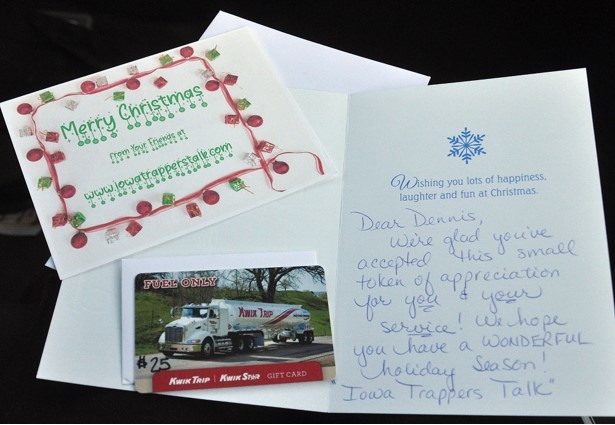 Merry Christmas
From Your Friends at
www.Iowatrapperstalk.com
FUEL ONLY
KWIK TRIP
#25
KWIK TRIP | KWIK STAR GIFT CARD
Wishing you lots of happiness,
laughter and fun at Christmas.
Dear Dennis,
We're glad you've
accepted this small
token of appreciation
for you & your
service! We hope
you have a WONDERFUL
holiday Season!
Iowa Trappers Talk"